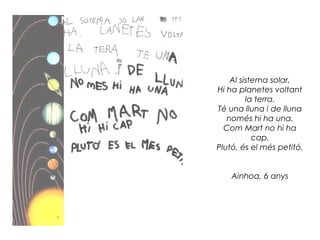 AL SISTEMA SO LAR
HA. LANETES VOLTA
LA TERA TE UNA
LLUNA I DE LLUN
NOMES HI HA UNA
COM MART NO
HI HI CAP
PLUTÓ ES EL MES PETI
Al sistema solar,
Hi ha planetes voltant
la terra.
Té una lluna i de lluna
només hi ha una.
Com Mart no hi ha
cap.
Plutó, és el més petitó.
Ainhoa, 6 anys